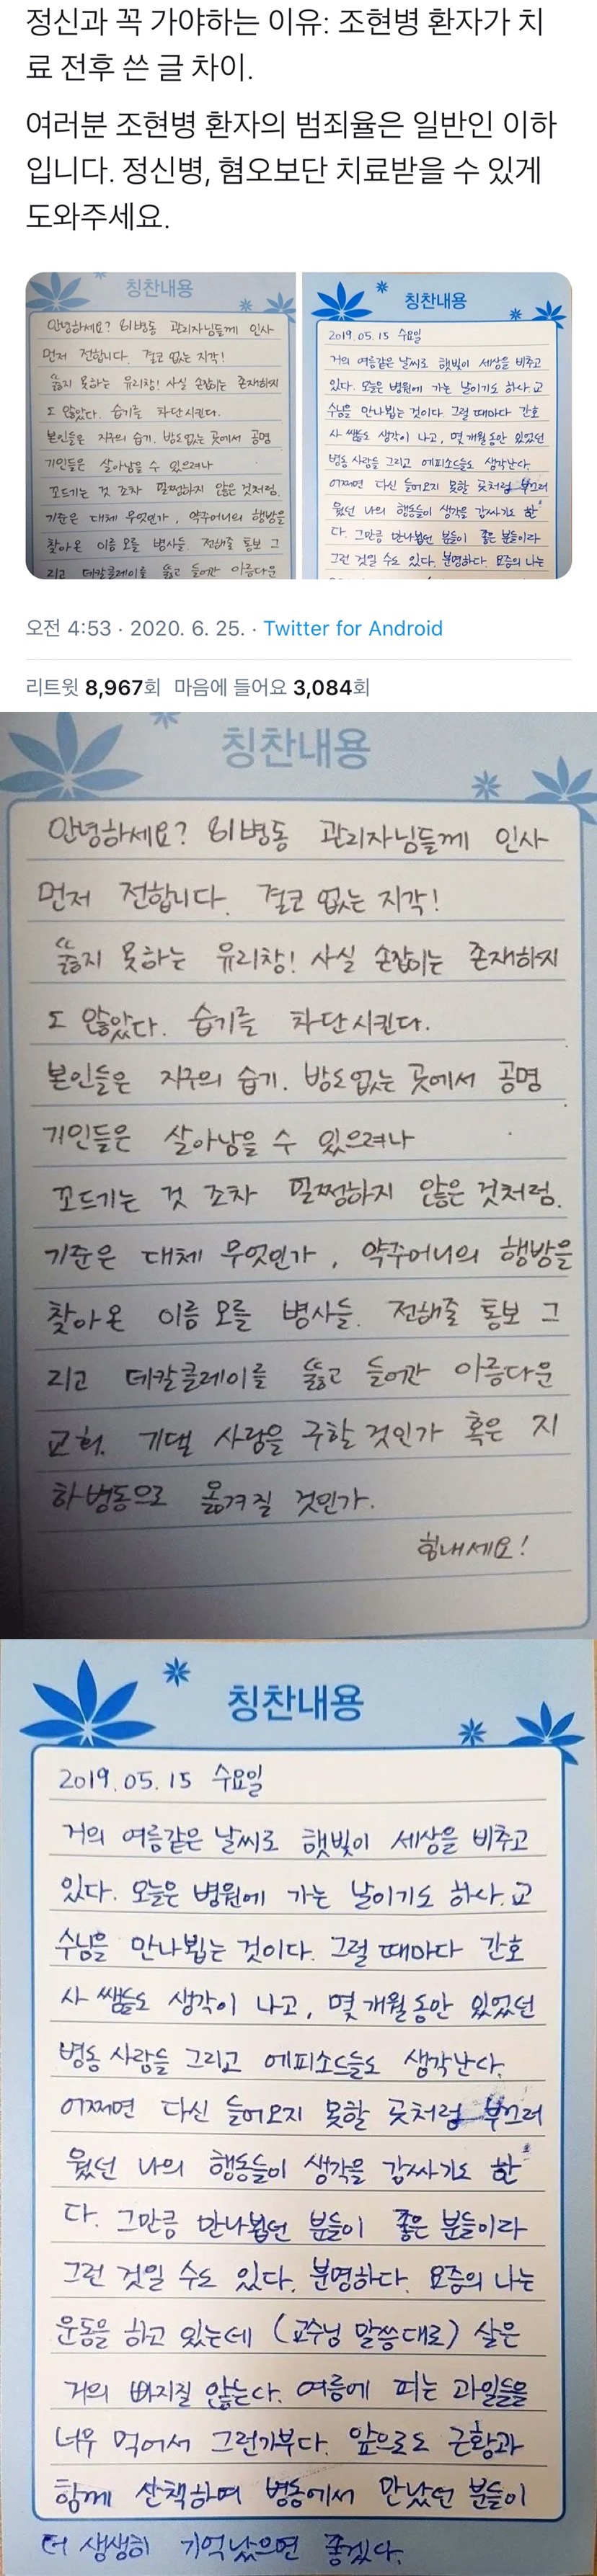 정신과 꼭 가야하는 이유: 조현병 환자가 치
료 전후 쓴 글 차이.
여러분 조현병 환자의 범죄율은 일반인 이하
입니다. 정신병, 혐오보단 치료받을 수 있게
도와주세요.
칭찬내용
안녕하세요? 61병동 관리자님들께 인사
먼저 전합니다. 결코 없는 지각!
뚫지 못하는 유리창! 사실 손잡이는 존재하지
도 않았다. 습기를 차단시킨다.
본인들은 지구의 습기. 방도없는 곳에서 공명
기인들은 살아남을 수 있으려나
꼬드기는 것 조차 멀쩡하지 않은 것처럼.
기준은 대체 무엇인가, 약주머니의 행방을
찾아온 이름 모를 병사들. 전해줄 통보 그
리고 데칼클레이를 뚫고 들어간 아름다운
칭찬내용
2019.05.15 수요일
거의 여름같은 날씨로 햇빛이 세상을 비추고
있다. 오늘은 병원에 가는 날이기도 하다. 교
수님을 만나뵙는 것이다. 그럴 때마다 간호
사 쌤들도 생각이 나고, 몇 개월동안 있었던
병동 사람들 그리고 에피소드들도 생각난다.
어쩌면 다신 들어오지 못할 곳처럼 부끄러
웠던 나의 행동들이 생각을 감싸기도 한
다. 그만큼 만나뵙던 분들이 좋은 분들이라
그런 것일 수도 있다. 분명하다. 요즘의 나는
오전 4:53 · 2020. 6. 25. · Twitter for Android
리트윗 8,967회 마음에 들어요 3,084회
칭찬내용
안녕하세요? 61병동 관리자님들께 인사
먼저 전합니다. 결코 없는 지각!
뚫지 못하는 유리창! 사실 손잡이는 존재하지
도 않았다. 습기를 차단시킨다.
본인들은 지구의 습기. 방도없는 곳에서 공명
기인들은 살아남을 수 있으려나
꼬드기는 것 조차 멀쩡하지 않은 것처럼.
기준은 대체 무엇인가, 약주머니의 행방을
찾아온 이름 모를 병사들. 전해줄 통보 그
리고 데칼클레이를 뚫고 들어간 아름다운
교회. 기댈 사람을 구할 것인가 혹은 지
하병동으로 옮겨질 것인가.
힘내세요!
칭찬내용
2019.05.15 수요일
거의 여름같은 날씨로 햇빛이 세상을 비추고
있다. 오늘은 병원에 가는 날이기도 하다. 교
수님을 만나뵙는 것이다. 그럴 때마다 간호
사 쌤들도 생각이 나고, 몇 개월동안 있었던
병동 사람들 그리고 에피소드들도 생각난다.
어쩌면 다신 들어오지 못할 곳처럼 부끄러
웠던 나의 행동들이 생각을 감싸기도 한
다. 그만큼 만나뵙던 분들이 좋은 분들이라
그런 것일 수도 있다. 분명하다. 요즘의 나는
운동을 하고 있는데 (교수님 말씀대로) 살은
거의 빠지질 않는다. 여름에 피는 과일들을
너무 먹어서 그런가부다. 앞으로도 근황과
함께 산책하며 병동에서 만났던 분들이
더 생생히 기억났으면 좋겠다.